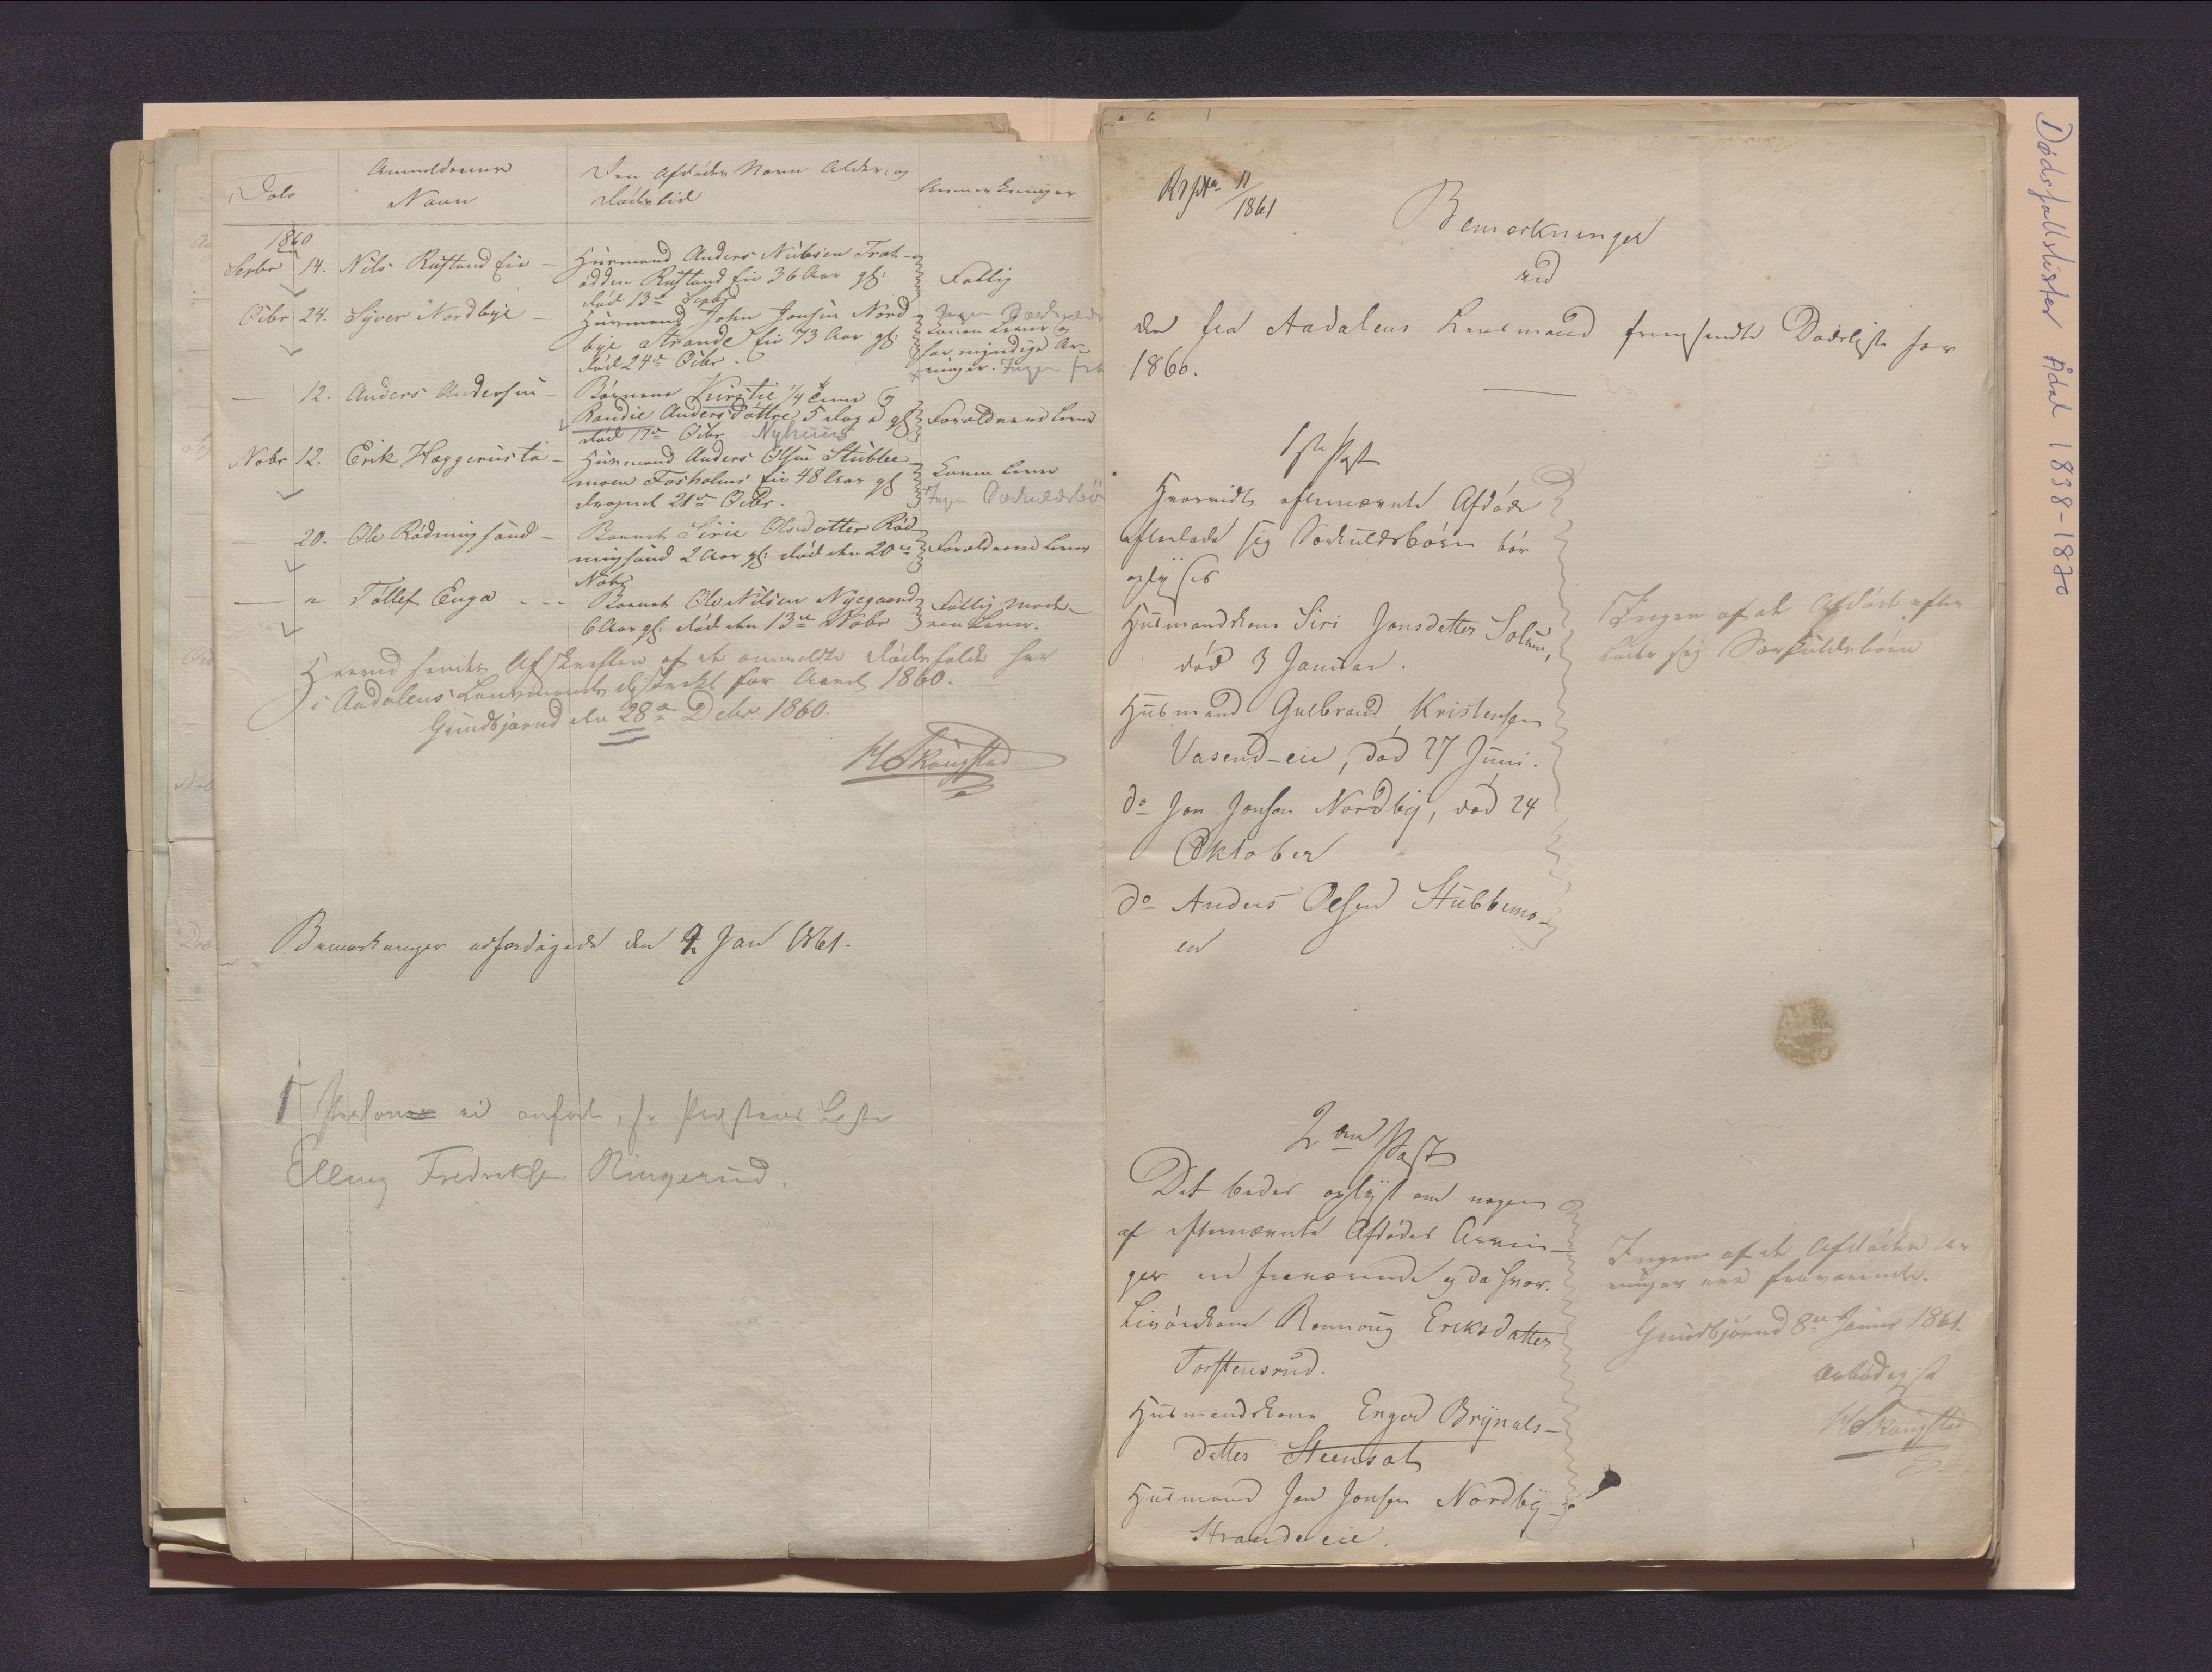 Dato
Anmelderens
Navn
Den Afdødes Navn Alder, og
Dødstid
Anmerkninger
1860
Septbr 14. Nils Rustand Eie –
Huusmand Anders Nielsen Træk-
odden Rustand Eie 36 Aar gl:
død 13de Septbr
Fattig
Octbr 24. Syver Nordbye –
Huusmand John Jonsen Nord-
bye Strande Eie 73 Aar gl:
død 24de Octbr.
Ingen
Konen lever og
har myndige Ar-
vinger. Ingen
— 12. Anders Andersen –
Børnene Kirstie 1/4 Time og
Randie Andersdøttre 5 Dage gl
død 17de Octbr Nyhuus
Forældrene lever
Nobr 12. Erik Hæggerusta –
Huusmand Anders Olsen Stubbe-
moen Fosholms Eie 48 Aar gl
druknet 21de Octbr.
Konen lever
Ingen Særkuldsbør
— 20. Ole Rødningsand –
Barnet Sirie Olsdatter Rød-
ningsand 2 Aar gl: død den 20de
Nobr
Forældrene lever
— " Tollef Enga - - -
Barnet Ole Nilsen Nyegaard
6 Aar gl: død den 13de Nobr
Fattig Mode-
ren lever.
Herved sendes Afskriften af de anmeldte Dødsfalde her
i Aadalens Lensmandsdistrikt for Aaret 1860.
Gundbjørud den 28de Decbr 1860.
H Skougstad
Bemerkninger udfærdigede den 2 Jan 1861.
1 Person ei anført, se Præstens Liste
Elling Fredriksen Ringerud.
11/1861
Bemerkninger
ved
den fra Aadalens Lensmand fremsendte Dødsliste for
1860.
1ste Post
Hvorvidt efternævnte Afdøde
efterlade sig Særkuldsbørn bør
oplyses
Husmandskone Siri Jonsdatter Solum,
død 3 Januar.
Husmand Gulbrand Kristensen
Vasend-eie, død 27 Juni.
do Jon Jonsen Nordby, død 24
Oktober
do Anders Olsen Stubbemo-
en
Ingen af de Afdøde efter-
lader sig Særkuldsbørn
2den Post
Det bedes oplyst om nogen
af efternævnte Afdødes Arvin-
ger ere fraværende og da hvor.
Livørekone Rannoug Eriksdatter
Torstensrud.
Husmandskone Enger Brynuls-
datter Steensæt
Husmand Jon Jonsen Nordby
Strandeeie.
Ingen af de Afdødes Ar-
vinger ere fraværende.
Gundbjørud 8de Januar 1861.
Ærbødigst
H Skougstad
Dødsfallslister Ådal 1838-1870